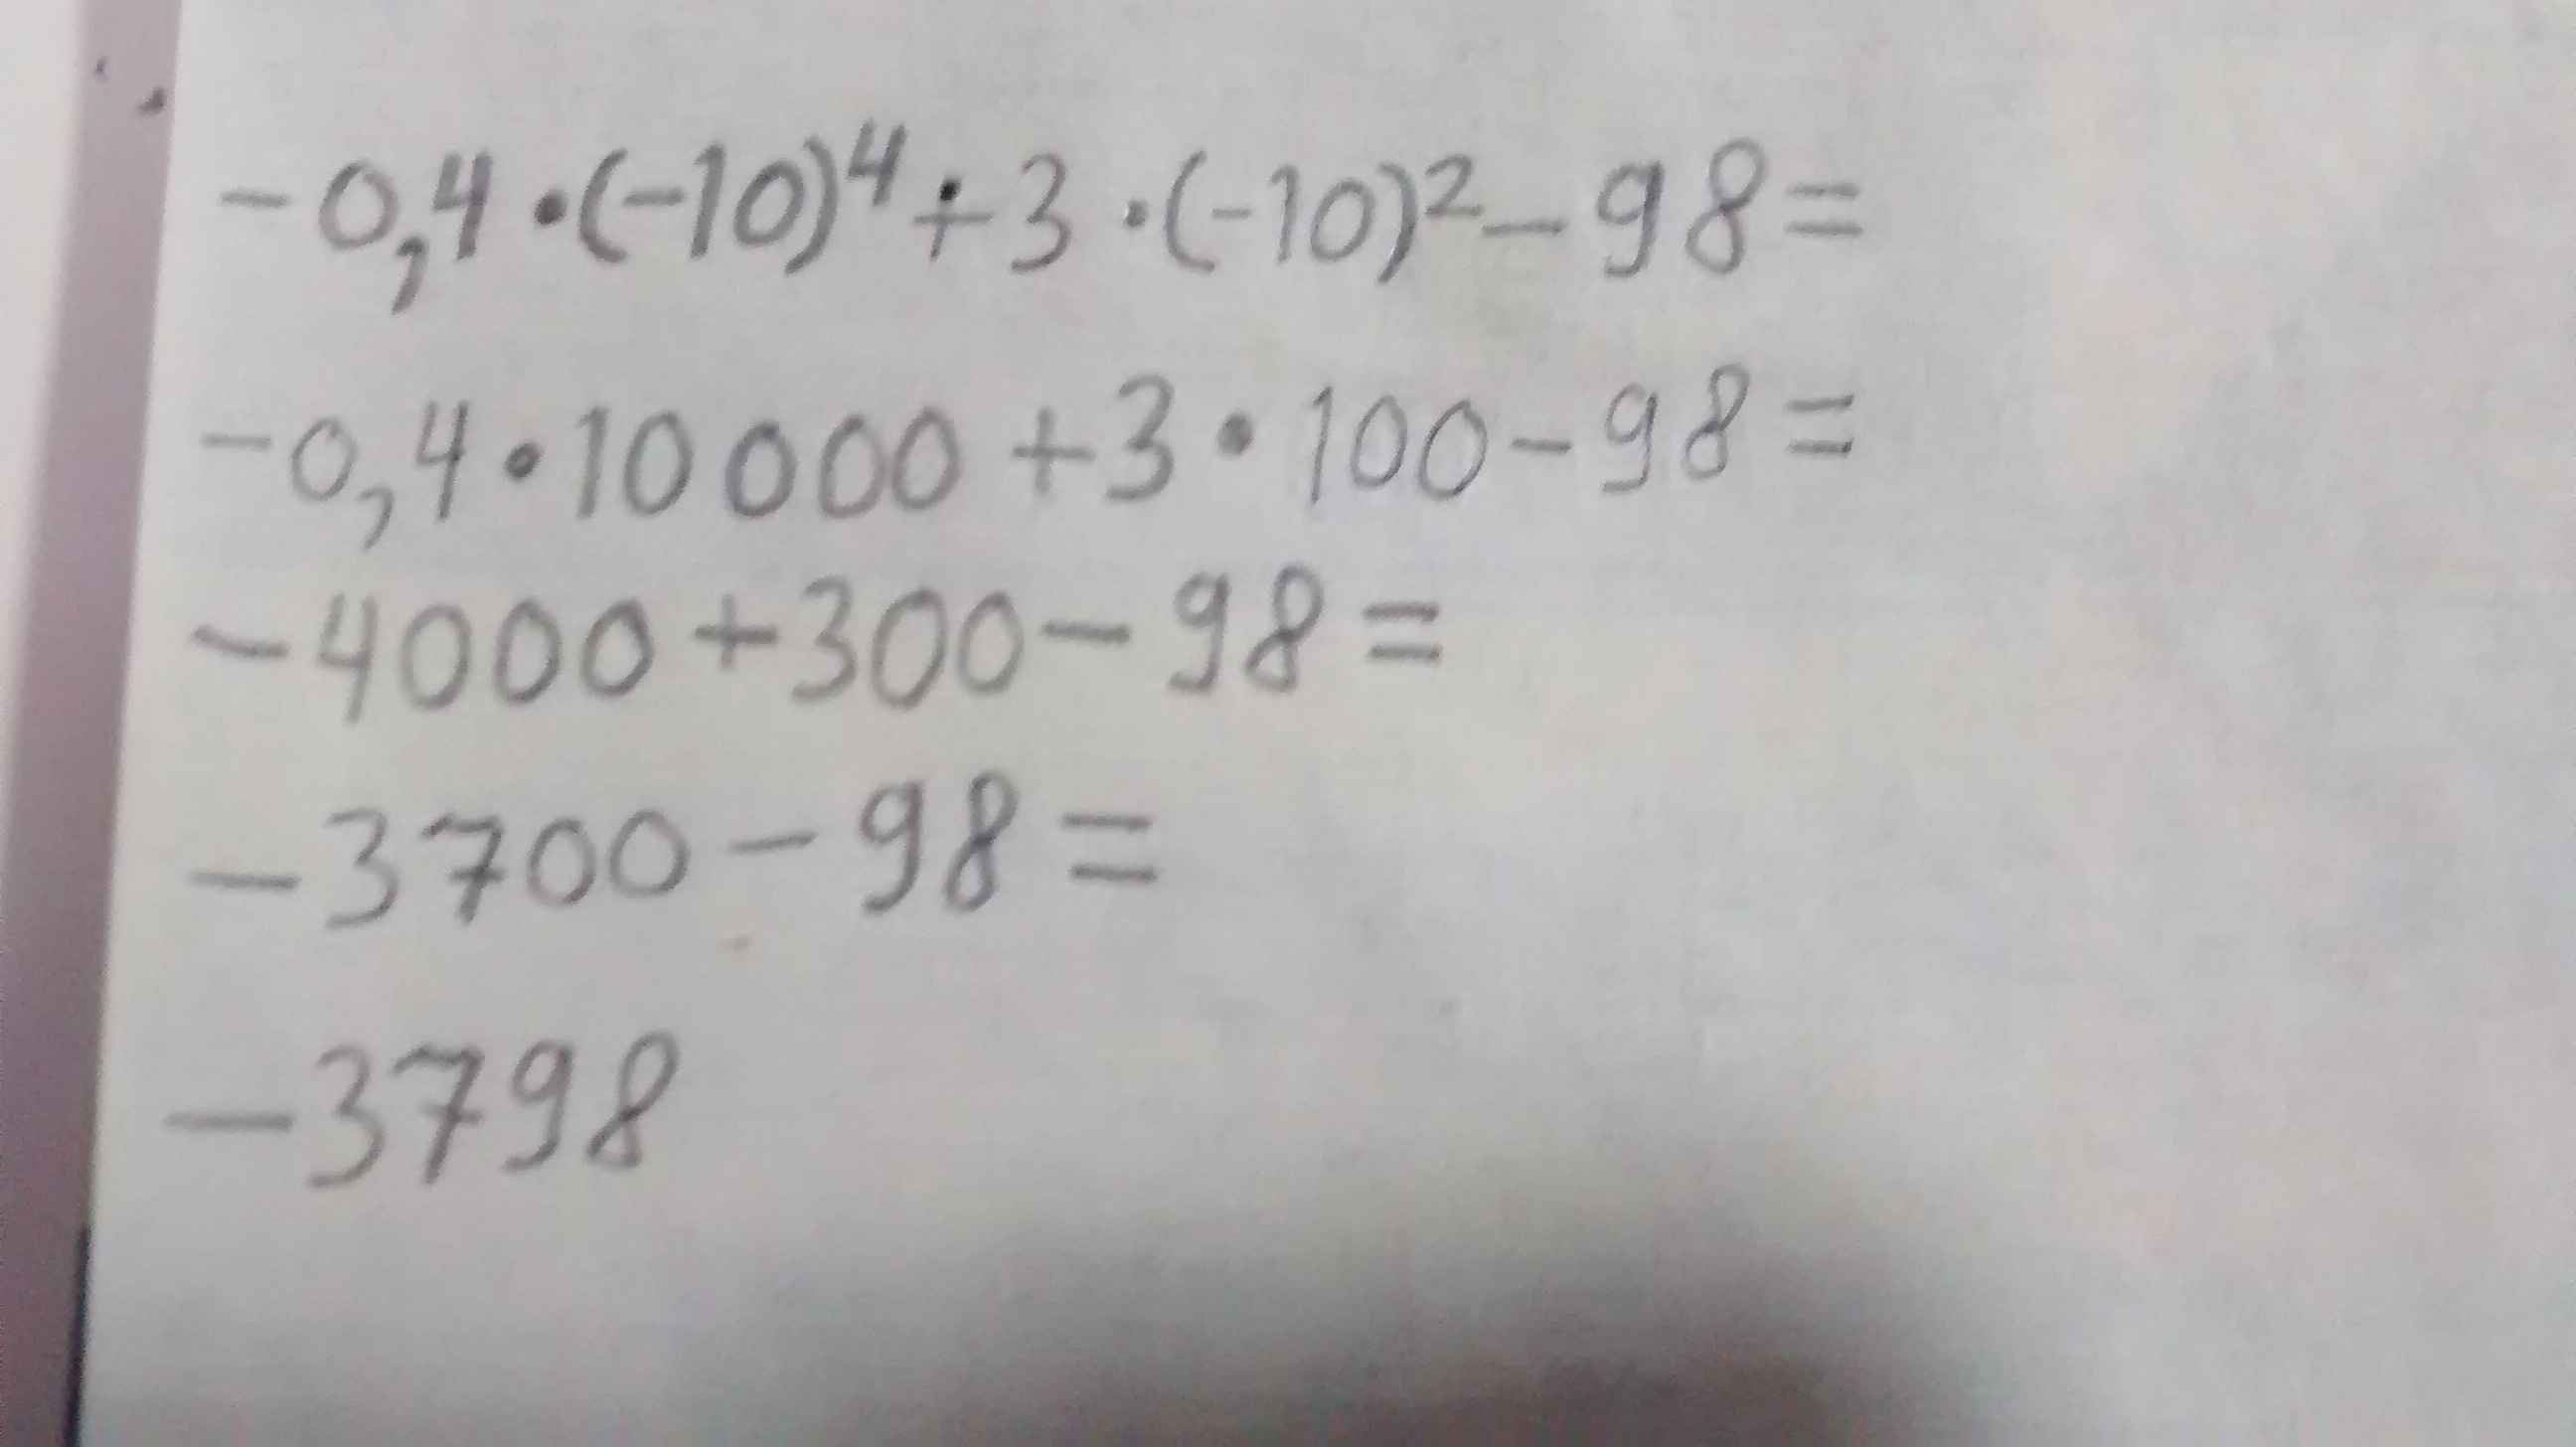 -0,4·(-10)⁴+3·(-10)²-98=
-0,4·10000+3·100-98=
-4000+300-98=
-3700-98=
-3798